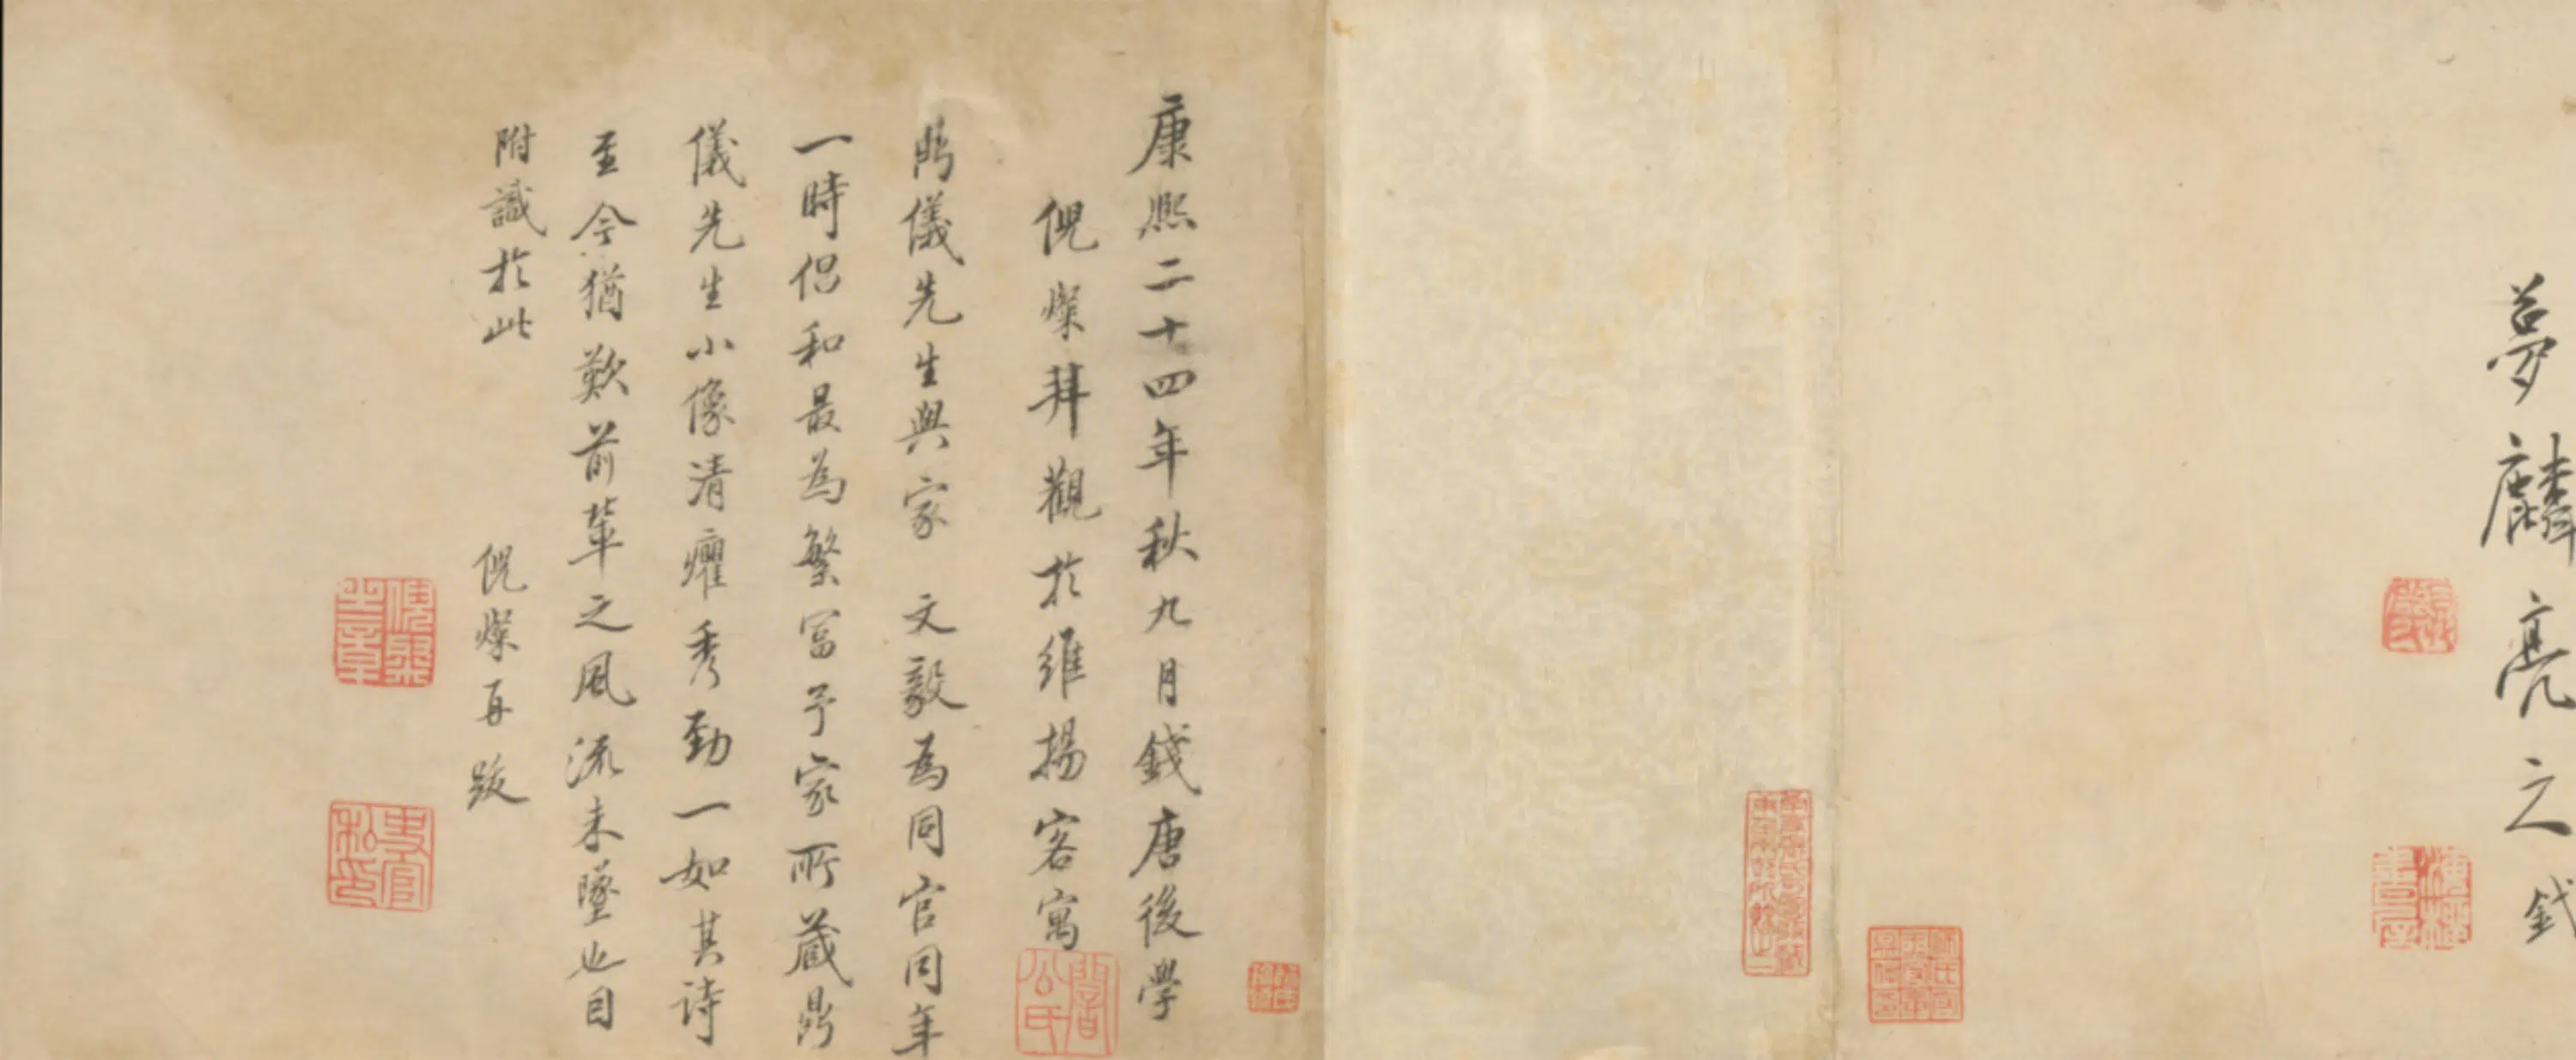 夢麟亮之
康熙二十四年秋九月錢唐後學
倪燦拜觀於維揚客寓
鼎儀先生與家 文毅為同官同年
一時侶和最為繁富予家所藏鼎
儀先生小像清癯秀勁一如其詩
至今猶歎前輩之風流未墜也因
附識於此 倪燦再跋
倪燦之章
史官私印
闇公氏